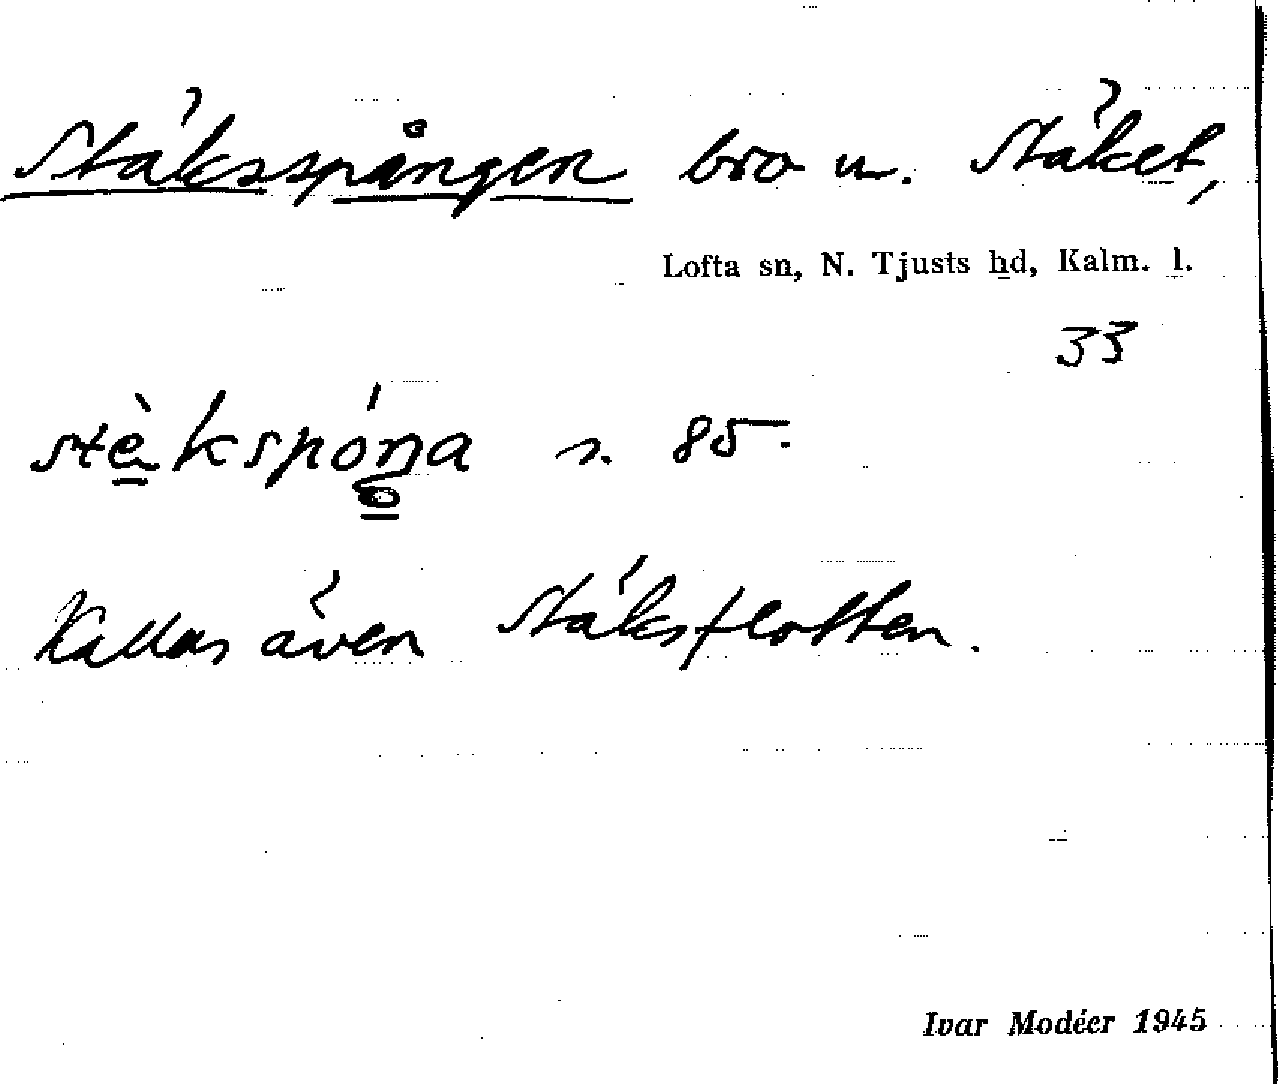 Stäksspången bro u. Stäket,
Lofta sn, N. Tjusts hd, Kalm. l.
33
s. 85.
Kallas även Stäksflotten.
Ivar Modéer 1945